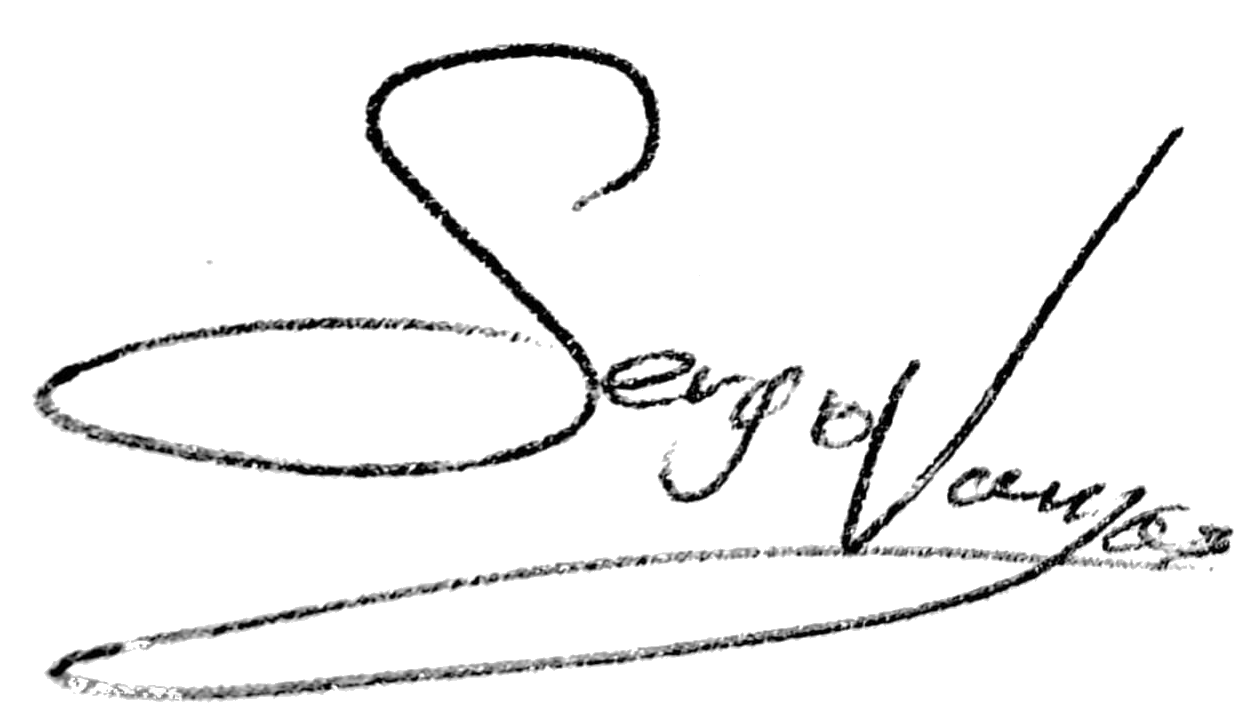 Sergio Vargas